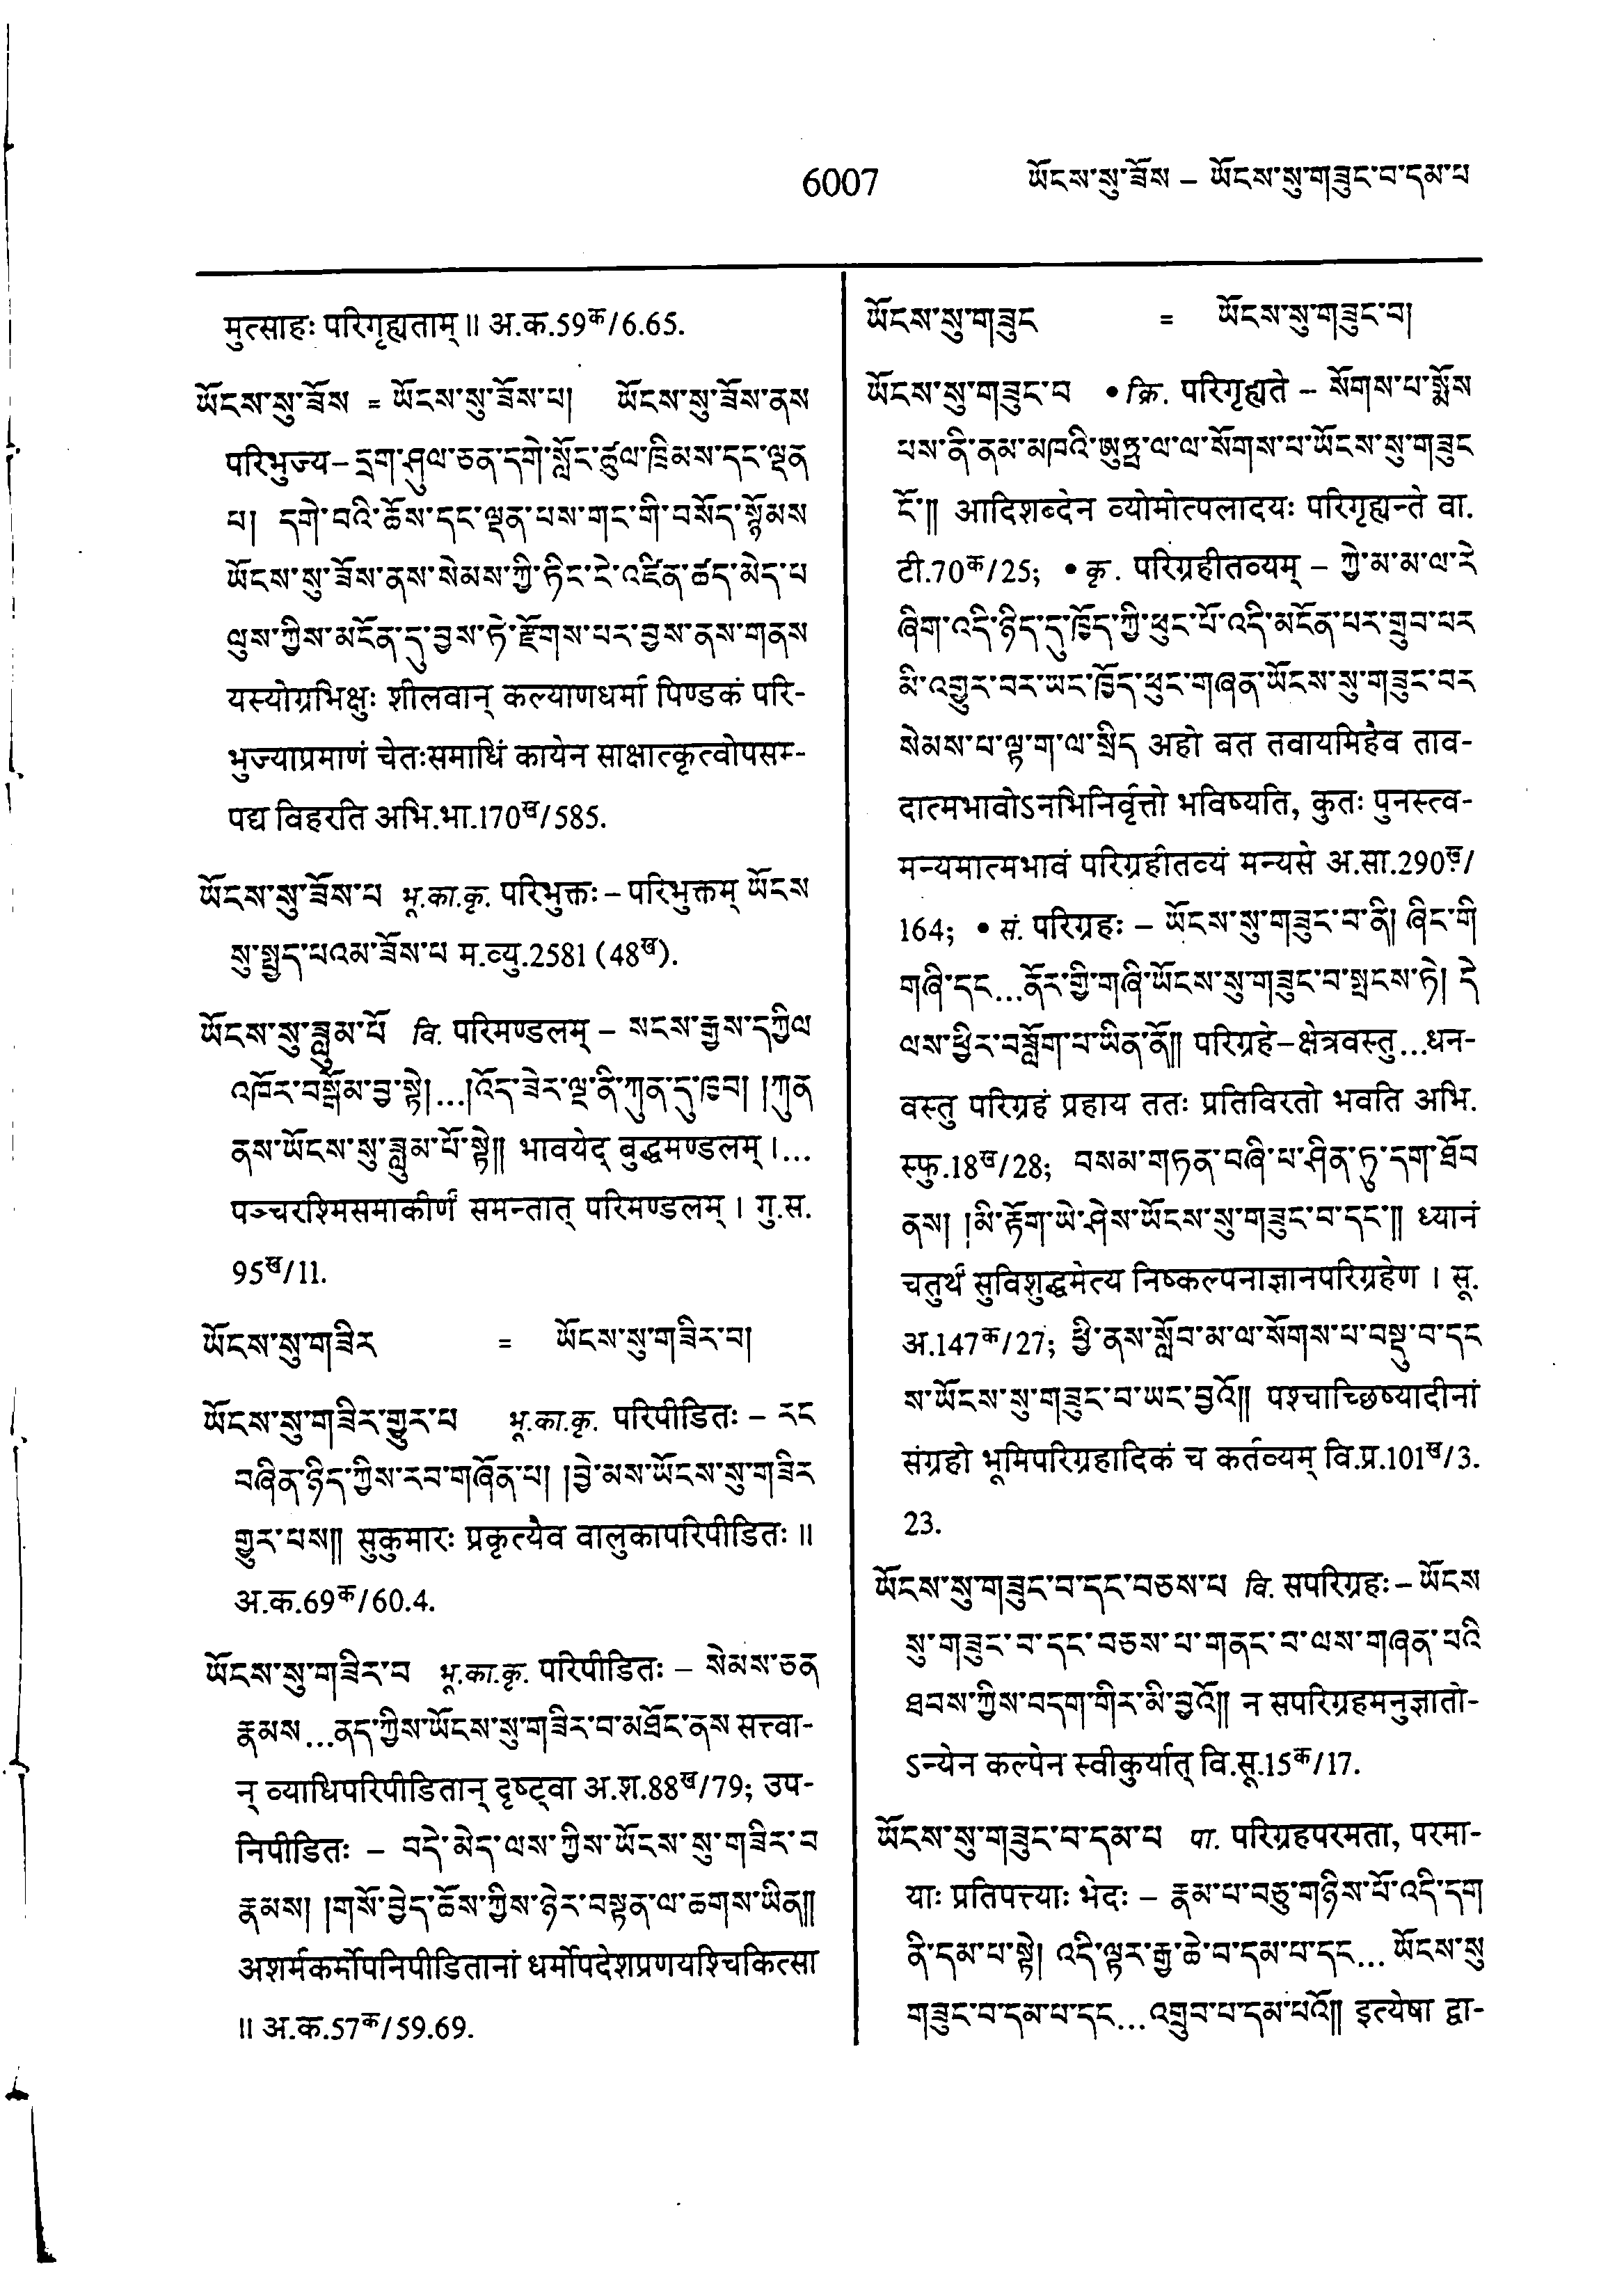 6007
ཡོངས་སུ་ཟོས – ཡོངས་སུ་གཟུང་བ་དམ་པ
मुत्साहः परिगृह्यताम्॥ अ.क.59क/6.65.
ཡོངས་སུ་ཟོས = ཡོངས་སུ་ཟོས་པ། ཡོངས་སུ་ཟོས་ནས
परिभुज्य– དྲག་ཤུལ་ཅན་དགེ་སློང་ཚུལ་ཁྲིམས་དང་ལྡན
པ། དགེ་བའི་ཆོས་དང་ལྡན་པས་གང་གི་བསོད་སྙོམས
ཡོངས་སུ་ཟོས་ནས་སེམས་ཀྱི་ཏིང་ངེ་འཛིན་ཚད་མེད་པ
ལུས་ཀྱིས་མངོན་དུ་བྱས་ཏེ་རྫོགས་པར་བྱས་ནས་གནས
यस्योग्रभिक्षुः शीलवान् कल्याणधर्मा पिण्डकं परि-
भुज्याप्रमाणं चेतःसमाधिं कायेन साक्षात्कृत्वोपसम्-
पद्य विहरति अभि.भा.170ख/585.
ཡོངས་སུ་ཟོས་པ भू.का.कृ. परिभुक्तः – परिभुक्तम् ཡོངས
སུ་སྤྱད་པའམ་ཟོས་པ म.व्यु.2581 (48ख).
ཡོངས་སུ་ཟླུམ་པོ वि. परिमण्डलम् – སངས་རྒྱས་དཀྱིལ
འཁོར་བསྒོམ་བྱ་སྟེ།...།འོད་ཟེར་ལྔ་ནི་ཀུན་དུ་ཁྱབ། །ཀུན
ནས་ཡོངས་སུ་ཟླུམ་པོ་སྟེ།། भावयेद् बुद्धमण्डलम्।...
पञ्चरश्मिसमाकीर्णं समन्तात् परिमण्डलम्। गु.स.
95ख/11.
ཡོངས་སུ་གཟིར = ཡོངས་སུ་གཟིར་བ།
ཡོངས་སུ་གཟིར་གྱུར་པ भू.का.कृ. परिपीडितः – རང
བཞིན་ཉིད་ཀྱིས་རབ་གཞོན་པ། །བྱེ་མས་ཡོངས་སུ་གཟིར
གྱུར་པས།། सुकुमारः प्रकृत्यैव वालुकापरिपीडितः॥
अ.क.69क/60.4.
ཡོངས་སུ་གཟིར་བ भू.का.कृ. परिपीडितः – སེམས་ཅན
རྣམས...ནད་ཀྱིས་ཡོངས་སུ་གཟིར་བ་མཐོང་ནས सत्त्वा-
न् व्याधिपरिपीडितान् दृष्ट्वा अ.श.88ख/79; उप-
निपीडितः – བདེ་མེད་ལས་ཀྱིས་ཡོངས་སུ་གཟིར་བ
རྣམས། །གསོ་བྱེད་ཆོས་ཀྱིས་ཉེར་བསྟན་ལ་ཆགས་ཡིན།།
अशर्मकर्मोपनिपीडितानां धर्मोपदेशप्रणयश्चिकित्सा
॥ अ.क.57क/59.69.
ཡོངས་སུ་གཟུང = ཡོངས་སུ་གཟུང་བ།
ཡོངས་སུ་གཟུང་བ • क्रि. परिगृह्यते – སོགས་པ་སྨོས
པས་ནི་ནམ་མཁའི་ཨུཏྤ་ལ་ལ་སོགས་པ་ཡོངས་སུ་གཟུང
ངོ་།། आदिशब्देन व्योमोत्पलादयः परिगृह्यन्ते वा.
टी.70क/25; • कृ. परिग्रहीतव्यम् – ཀྱེ་མ་མ་ལ་རེ
ཞིག་འདི་ཉིད་དུ་ཁྱོད་ཀྱི་ཕུང་པོ་འདི་མངོན་པར་གྲུབ་པར
མི་འགྱུར་བར་ཡང་ཁྱོད་ཕུང་གཞན་ཡོངས་སུ་གཟུང་བར
སེམས་པ་ལྟ་ག་ལ་སྲིད अहो बत तवायमिहैव ताव-
दात्मभावोऽनभिनिर्वृत्तो भविष्यति, कुतः पुनस्त्व-
मन्यमात्मभावं परिग्रहीतव्यं मन्यसे अ.सा.290ख/
164; • सं. परिग्रहः – ཡོངས་སུ་གཟུང་བ་ནི། ཞིང་གི
གཞི་དང...ནོར་གྱི་གཞི་ཡོངས་སུ་གཟུང་བ་སྤངས་ཏེ། དེ
ལས་ཕྱིར་བཟློག་པ་ཡིན་ནོ།། परिग्रहे–क्षेत्रवस्तु...धन-
वस्तु परिग्रहं प्रहाय ततः प्रतिविरतो भवति अभि.
स्फु.18ख/28; བསམ་གཏན་བཞི་པ་ཤིན་ཏུ་དག་ཐོབ
ནས། །མི་རྟོག་ཡེ་ཤེས་ཡོངས་སུ་གཟུང་བ་དང་།། ध्यानं
चतुर्थं सुविशुद्धमेत्य निष्कल्पनाज्ञानपरिग्रहेण। सू.
अ.147क/27; ཕྱི་ནས་སློབ་མ་ལ་སོགས་པ་བསྡུ་བ་དང
ས་ཡོངས་སུ་གཟུང་བ་ཡང་བྱའོ།། पश्चाच्छिष्यादीनां
संग्रहो भूमिपरिग्रहादिकं च कर्तव्यम् वि.प्र.101ख/3.
23.
ཡོངས་སུ་གཟུང་བ་དང་བཅས་པ वि. सपरिग्रहः – ཡོངས
སུ་གཟུང་བ་དང་བཅས་པ་གནང་བ་ལས་གཞན་པའི
ཐབས་ཀྱིས་བདག་གིར་མི་བྱའོ།། न सपरिग्रहमनुज्ञातो-
ऽन्येन कल्पेन स्वीकुर्यात् वि.सू.15क/17.
ཡོངས་སུ་གཟུང་བ་དམ་པ पा. परिग्रहपरमता, परमा-
याः प्रतिपत्त्याः भेदः – རྣམ་པ་བཅུ་གཉིས་པོ་འདི་དག
ནི་དམ་པ་སྟེ། འདི་ལྟར་རྒྱ་ཆེ་བ་དམ་པ་དང... ཡོངས་སུ
གཟུང་བ་དམ་པ་དང...འགྲུབ་པ་དམ་པའོ།། इत्येषा द्वा-